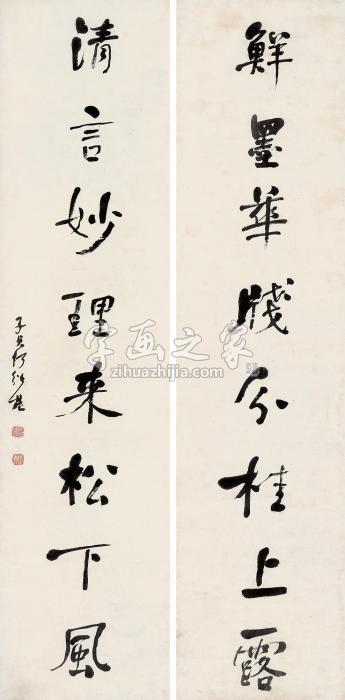 鲜墨华牋分桂上露
清言妙理来松下风
子贞何绍基
字画之家
zihuazhijia.com